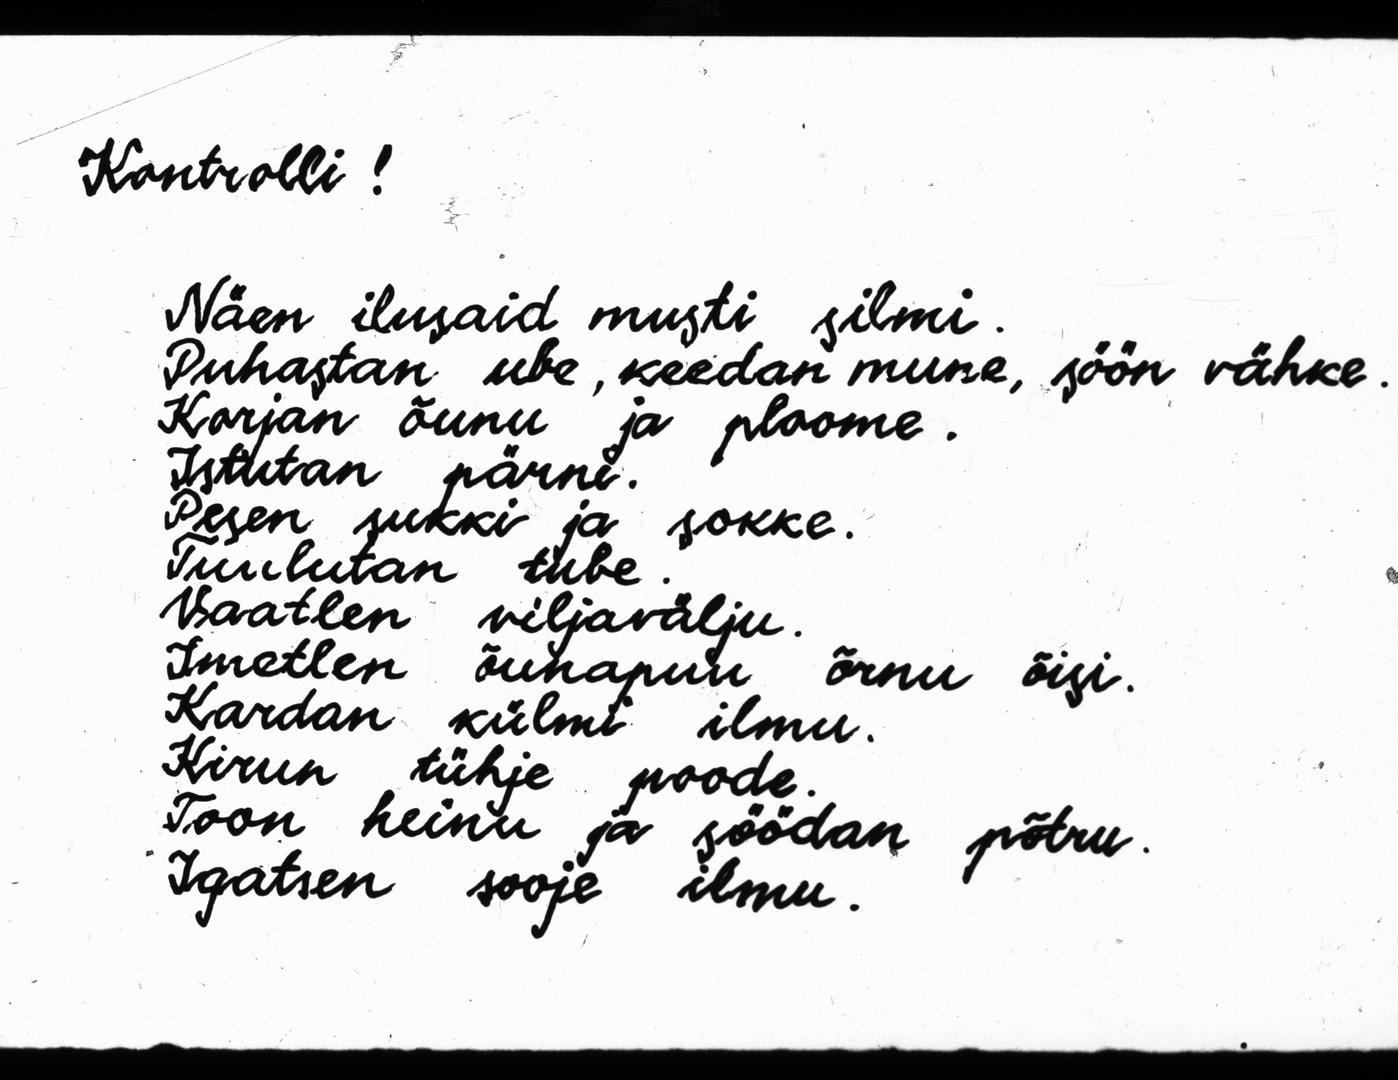 Kontrolli !
Näen ilusaid musti silmi.
Puhastan ube, keedan mune, söön vähke.
Korjan õunu ja ploome.
Istutan pärni.
Pesen sukki ja sokke.
Tuulutan tube.
Vaatlen viljavälju.
Imetlen õunapuu õrnu õisi.
Kardan külmi ilmu.
Kirun tühje poode.
Toon heinu ja söödan põtru.
Igatsen sooje ilmu.